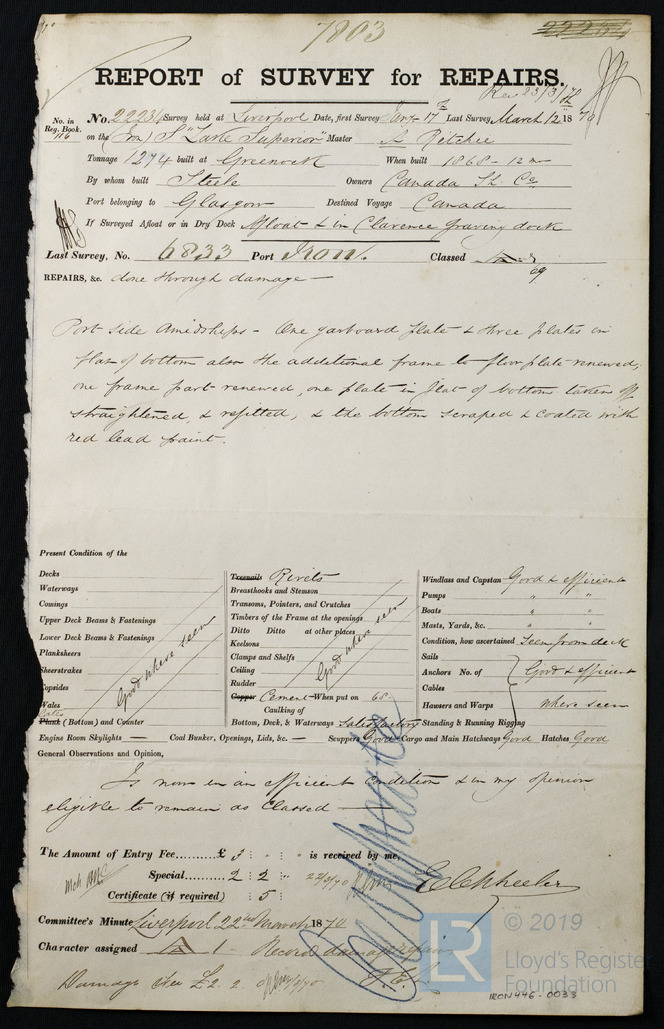 7803
REPORT of SURVEY for REPAIRS.
Rec 23/3/70
No. in Reg. Book. 116
No. 22231 Survey held at Liverpool Date, first Survey Jany 17th Last Survey, March 12 1870
on the (Iron) S "Lake Superior" Master A Ritchie
Tonnage 1274 built at Greenock When built 1868 - 12 mo
By whom built Steele Owners Canada Sh. Co.
Port belonging to Glasgow Destined Voyage Canada
If Surveyed Afloat or in Dry Dock Afloat & in Clarence Graving dock
Last Survey, No. 6833 Port Iron. Classed
69
REPAIRS, &c. done through damage —
Port side Amidships - One garboard plate & three plates in
flat of bottom also the additional frame to floor plate renewed,
one frame part renewed, one plate in flat of bottom taken off
straightened, & refitted, & the bottom scraped & coated with
red lead paint.
Present Condition of the
Decks
Waterways
Comings
Upper Deck Beams & Fastenings
Lower Deck Beams & Fastenings
Planksheers
Sheerstrakes
Topsides
Wales
Plates
Plank (Bottom) and Counter
Good where seen
Engine Room Skylights —
Treenails Rivets
Breasthooks and Stemson
Transoms, Pointers, and Crutches
Timbers of the Frame at the openings
Ditto Ditto at other places
Keelsons
Clamps and Shelfs
Ceiling
Rudder
Good where seen
Copper Cement When put on 68
Caulking of
Bottom, Deck, & Waterways Satisfactory
Coal Bunker, Openings, Lids, &c. —
Windlass and Capstan Good & efficient
Pumps " "
Boats " "
Masts, Yards, &c. " "
Condition, how ascertained Seen from deck
Sails
Anchors No. of Good & efficient
Cables
Hawsers and Warps where seen
Standing & Running Rigging
Scuppers Good Cargo and Main Hatchways Good Hatches Good
General Observations and Opinion,
Is now in an efficient condition & in my opinion
eligible to remain as Classed —
The Amount of Entry Fee..........£ : : is received by me,
Special.......... 2 : 2 :
Certificate (if required) : 5 :
Committee's Minute Liverpool 22nd March 1870
Character assigned A 1 Record damage repair
Damage Fee £2. 2.
© 2019
LR
Lloyd's Register
Foundation
IRON446-0033